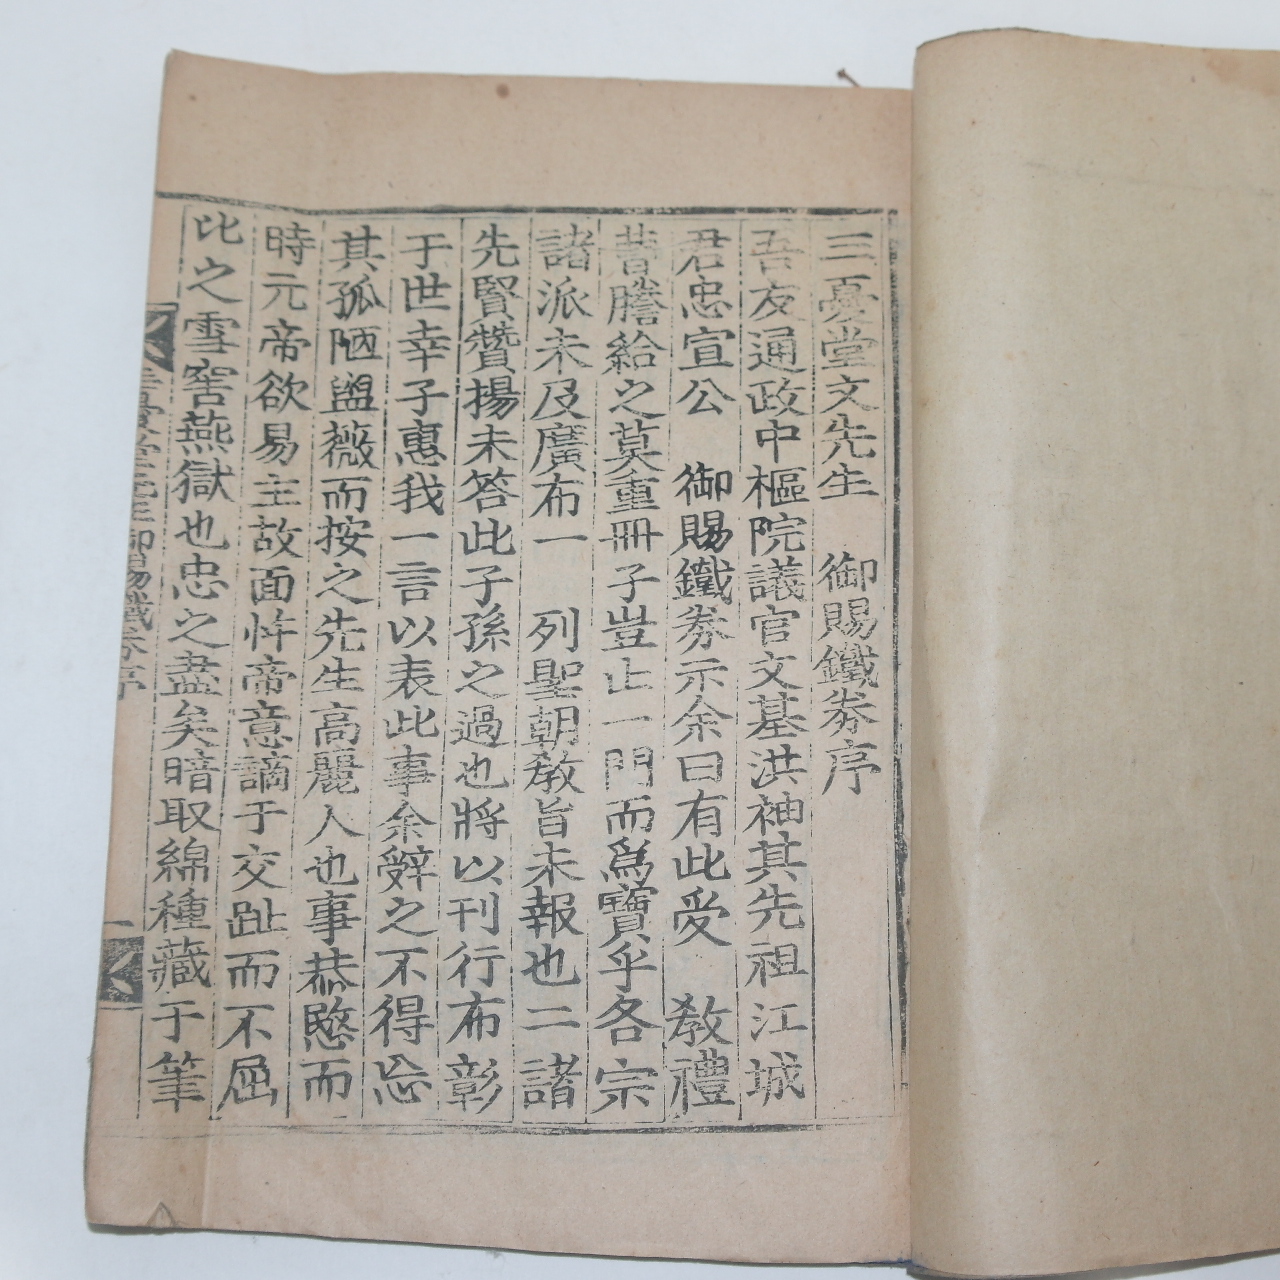 三憂堂文先生　御賜鐵券序
吾友通政中樞院議官文基洪袖其先祖江城
君忠宣公　御賜鐵券示余曰有此受　教禮
曹謄給之莫重冊子豈止一門而爲寶乎各宗
諸派未及廣布一　列聖朝教旨未報也二諸
先賢贊揚未答此子孫之過也將以刊行布彰
于世幸子惠我一言以表此事余辭之不得忘
其孤陋盥薇而按之先生高麗人也事恭愍而
時元帝欲易主故面忤帝意謫于交趾而不屈
比之雪窖燕獄也忠之盡矣暗取綿種藏于筆
三憂堂先生御賜鐵券序
一